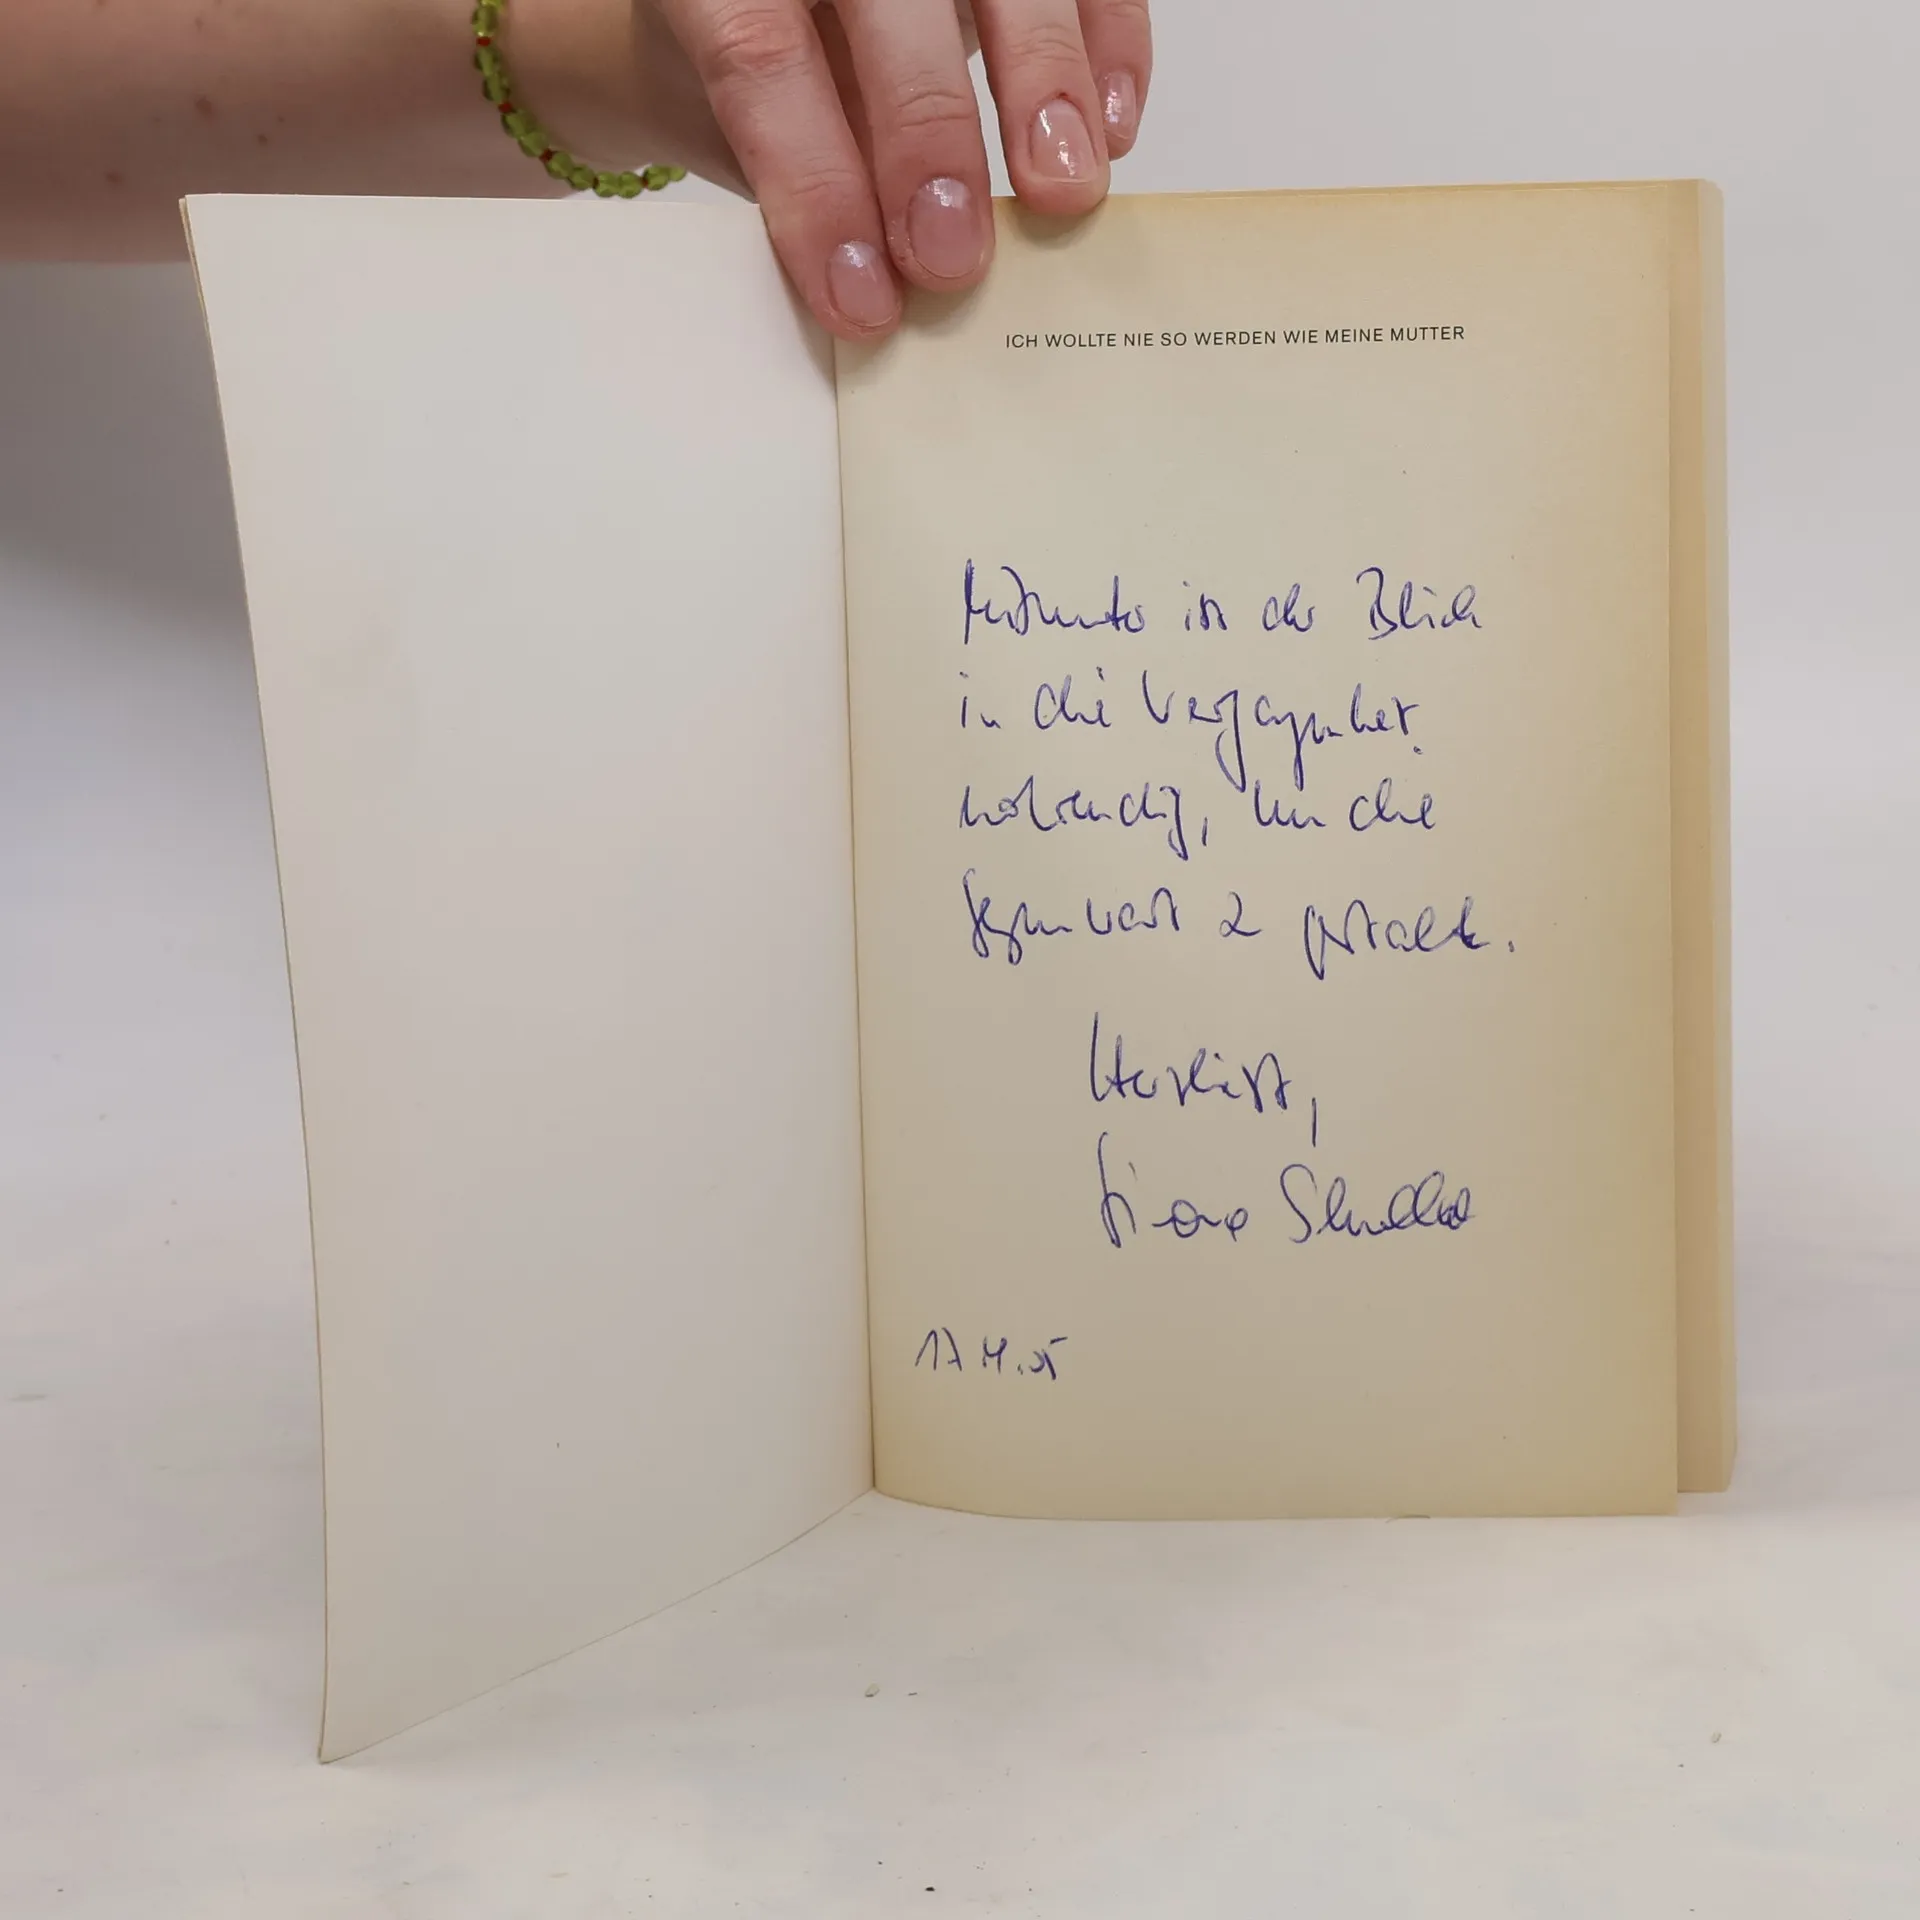 ICH WOLLTE NIE SO WERDEN WIE MEINE MUTTER
Mitunter ist der Blick
in die Vergangenheit
notwendig, um die
Gegenwart zu gestalten.
Herzlichst,
17